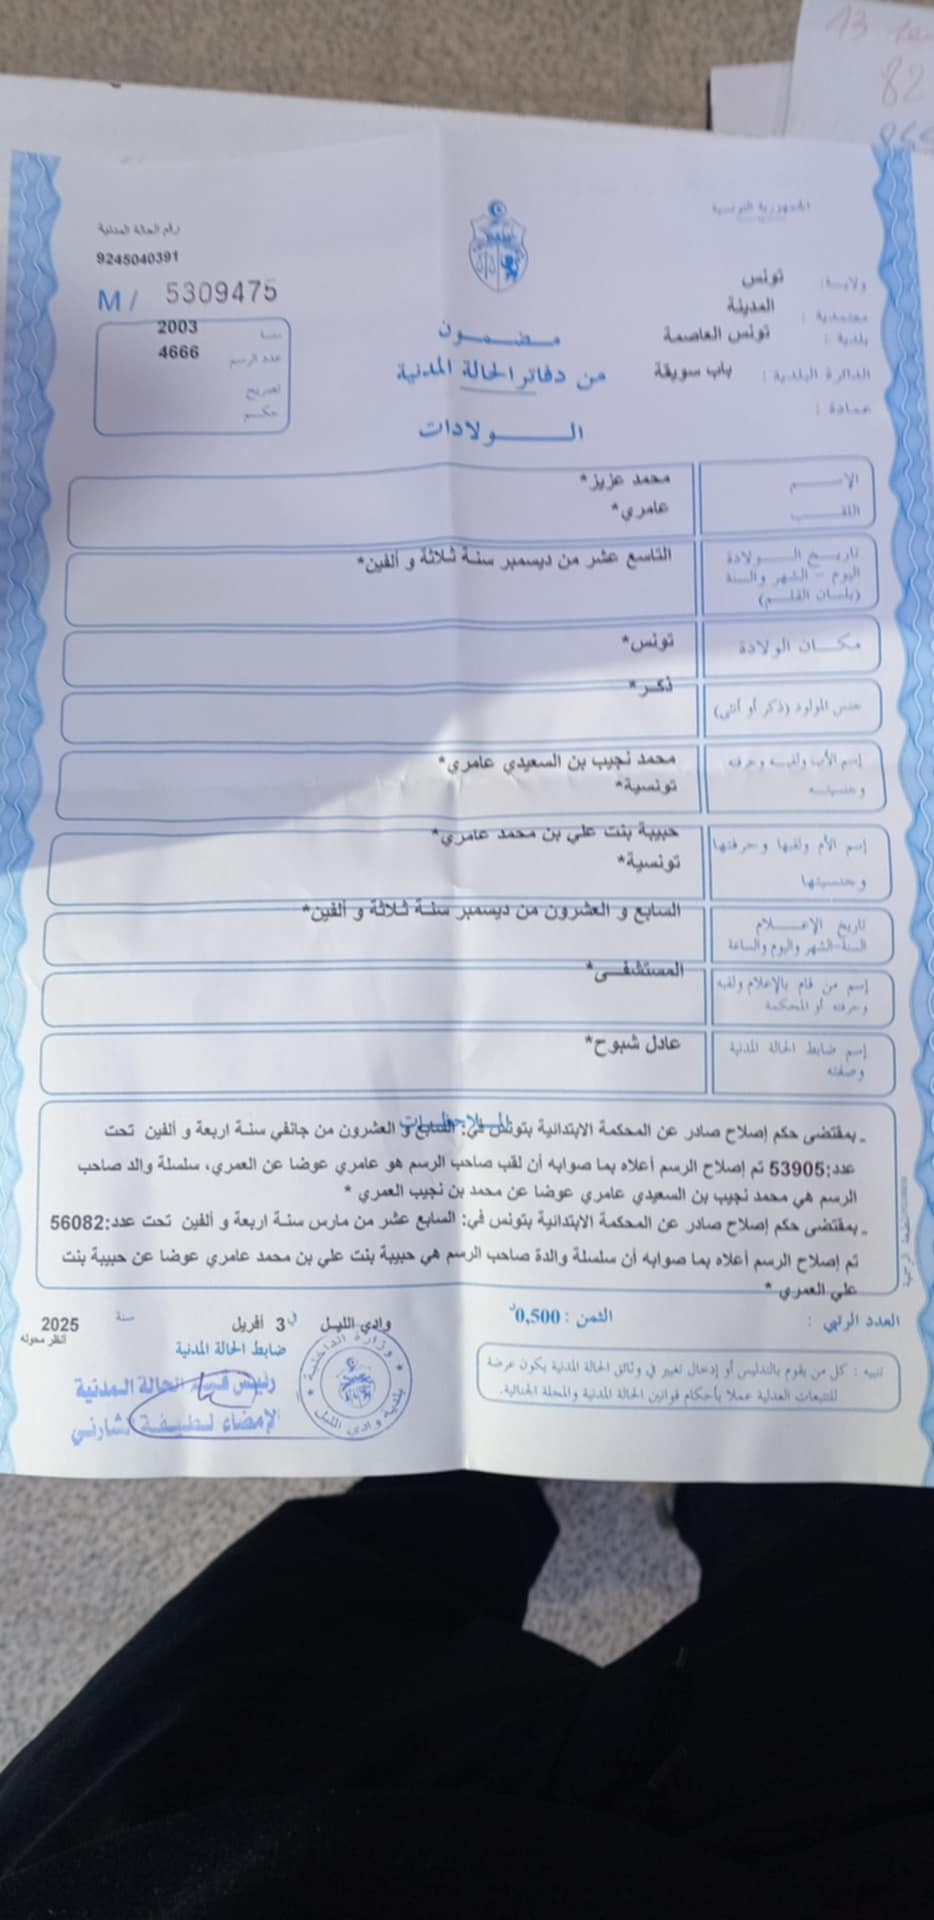 الجمهورية التونسية
ولاية: تونس
معتمدية : المدينة
بلدية : تونس العاصمة
الدائرة البلدية : باب سويقة
عمادة :
رقم الحالة المدنية
9245040391
M / 5309475
سنة 2003
عدد الرسم 4666
تصريح
حكم
مضمون
من دفاتر الحالة المدنية
الولادات
الاسم محمد عزيز*
اللقب عامري*
تاريخ الولادة التاسع عشر من ديسمبر سنة ثلاثة و ألفين*
اليوم - الشهر والسنة
(بلسان القلم)
مكان الولادة تونس*
جنس المولود (ذكر أو أنثى) ذكر*
إسم الأب ولقبه وحرفته محمد نجيب بن السعيدي عامري*
وجنسيته تونسية*
إسم الأم ولقبها وحرفتها حبيبة بنت علي بن محمد عامري*
وجنسيتها تونسية*
تاريخ الإعلام السابع و العشرون من ديسمبر سنة ثلاثة و ألفين*
السنة-الشهر واليوم والساعة
إسم من قام بالإعلام ولقبه المستشفى*
وحرفته أو المحكمة
إسم ضابط الحالة المدنية عادل شبوح*
وصفته
الملاحظات
ـ بمقتضى حكم إصلاح صادر عن المحكمة الابتدائية بتونس في: السابع و العشرون من جانفي سنة اربعة و ألفين تحت
عدد:53905 تم إصلاح الرسم أعلاه بما صوابه أن لقب صاحب الرسم هو عامري عوضا عن العمري، سلسلة والد صاحب
الرسم هي محمد نجيب بن السعيدي عامري عوضا عن محمد بن نجيب العمري *
ـ بمقتضى حكم إصلاح صادر عن المحكمة الابتدائية بتونس في: السابع عشر من مارس سنة اربعة و ألفين تحت عدد:56082
تم إصلاح الرسم أعلاه بما صوابه أن سلسلة والدة صاحب الرسم هي حبيبة بنت علي بن محمد عامري عوضا عن حبيبة بنت
علي العمري *
العدد الرتبي :
الثمن : 0,500
وادي الليل في 3 أفريل سنة 2025
أنظر محوله
ضابط الحالة المدنية
رئيس قسم الحالة المدنية
الإمضاء لطيفة
وزارة الداخلية
بلدية وادي الليل
تنبيه : كل من يقوم بالتدليس أو إدخال تغيير في وثائق الحالة المدنية يكون عرضة
للتتبعات العدلية عملا بأحكام قوانين الحالة المدنية والمجلة الجنائية.
82